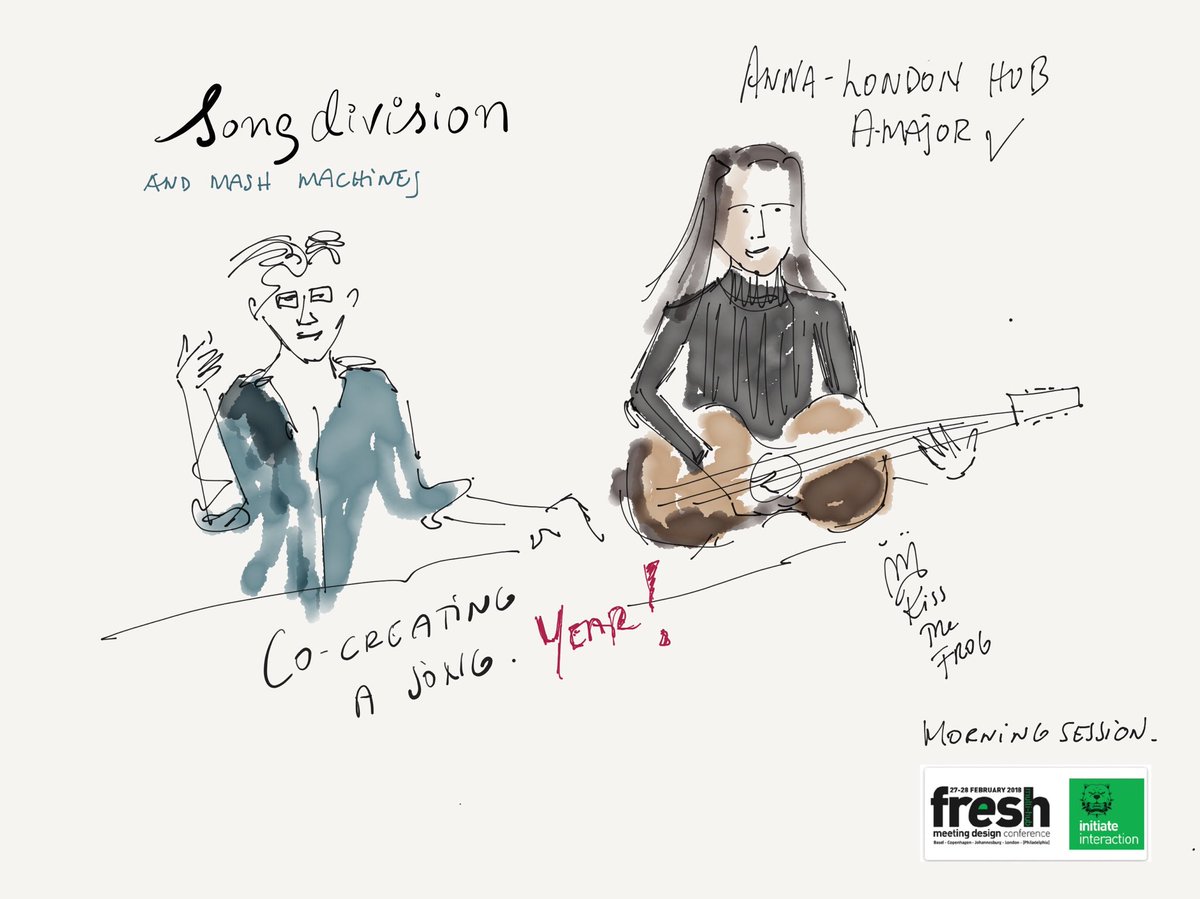 Song division
AND MASH MACHINES
ANNA-LONDON HUB
A-MAJOR
CO-CREATING
A SONG. YEAH!
Kiss
The
FROG
MORNING SESSION.
27-28 FEBRUARY 2018
fresh
multi-hub
meeting design conference
Basel - Copenhagen - Johannesburg - London - [Philadelphia]
initiate
interaction